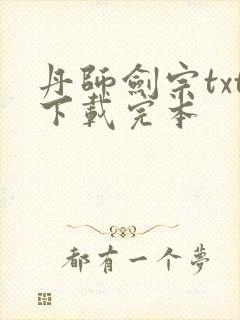 丹師劍宗txt
下載完本
都有一个夢